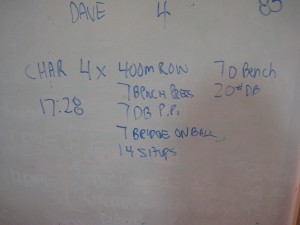 DAVE 4 85
CHAR 4 X 400M ROW 70 Bench
17:28 7 BENCH PRESS 20# DB
7 DB P.P.
7 BRIDGE ON BALL
14 SITUPS